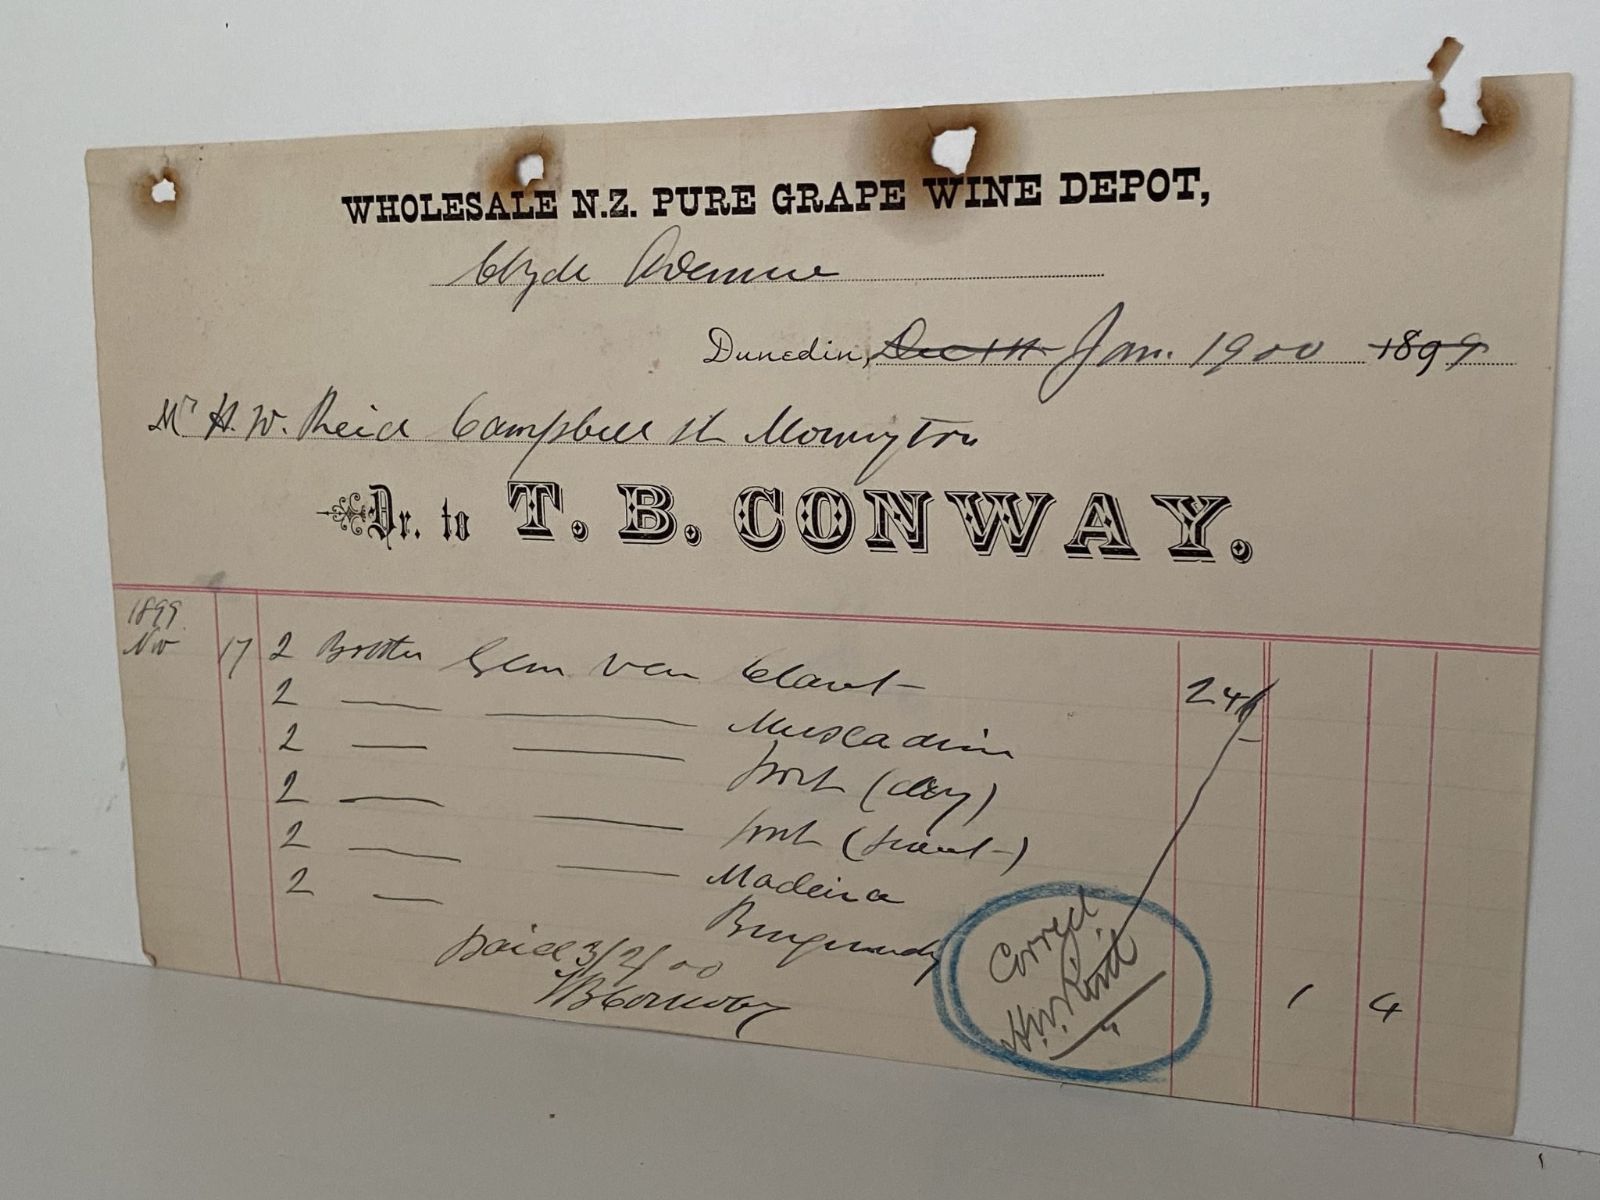 WHOLESALE N.Z. PURE GRAPE WINE DEPOT,
Clyde Avenue
Dunedin, Dec 1st Jan. 1900 1899
Mr H. W. Reid Campbell St Mornington
Dr. to T. B. CONWAY.
1899
Nov 17 2 Bottles Glen Claret 24/
2 — — Muscadine
2 — — Port (dry)
2 — — Port (sweet)
2 — — Madeira
2 — Burgundy
Paid 3/2/00
TB Conway
Correct
H.W.
1 4